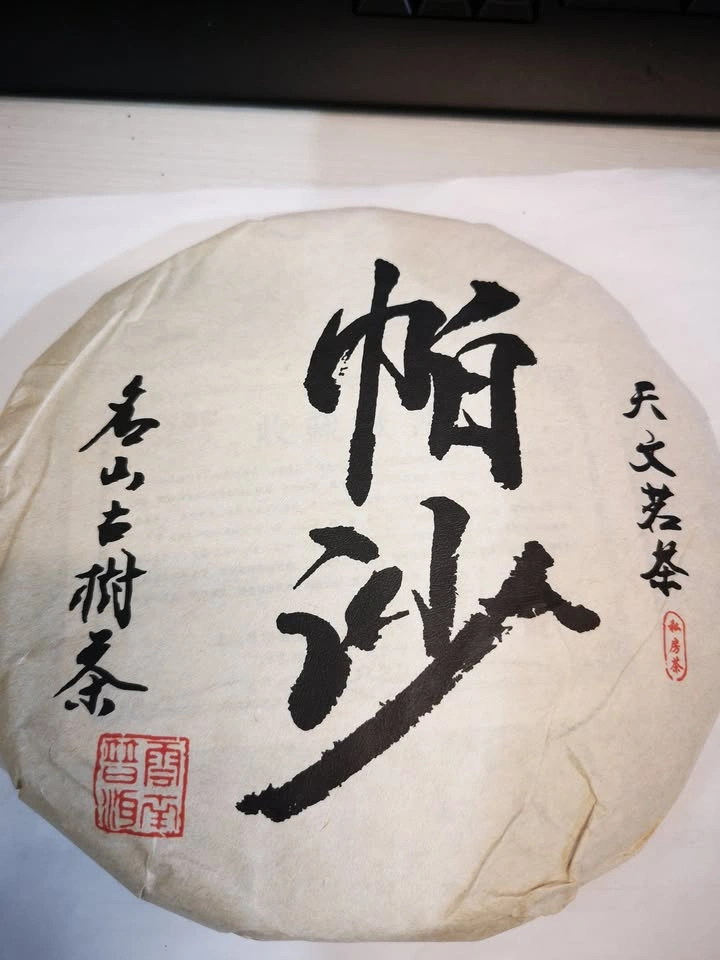 天文茗茶
私房茶
帕沙
名山古樹茶
雲南
普洱